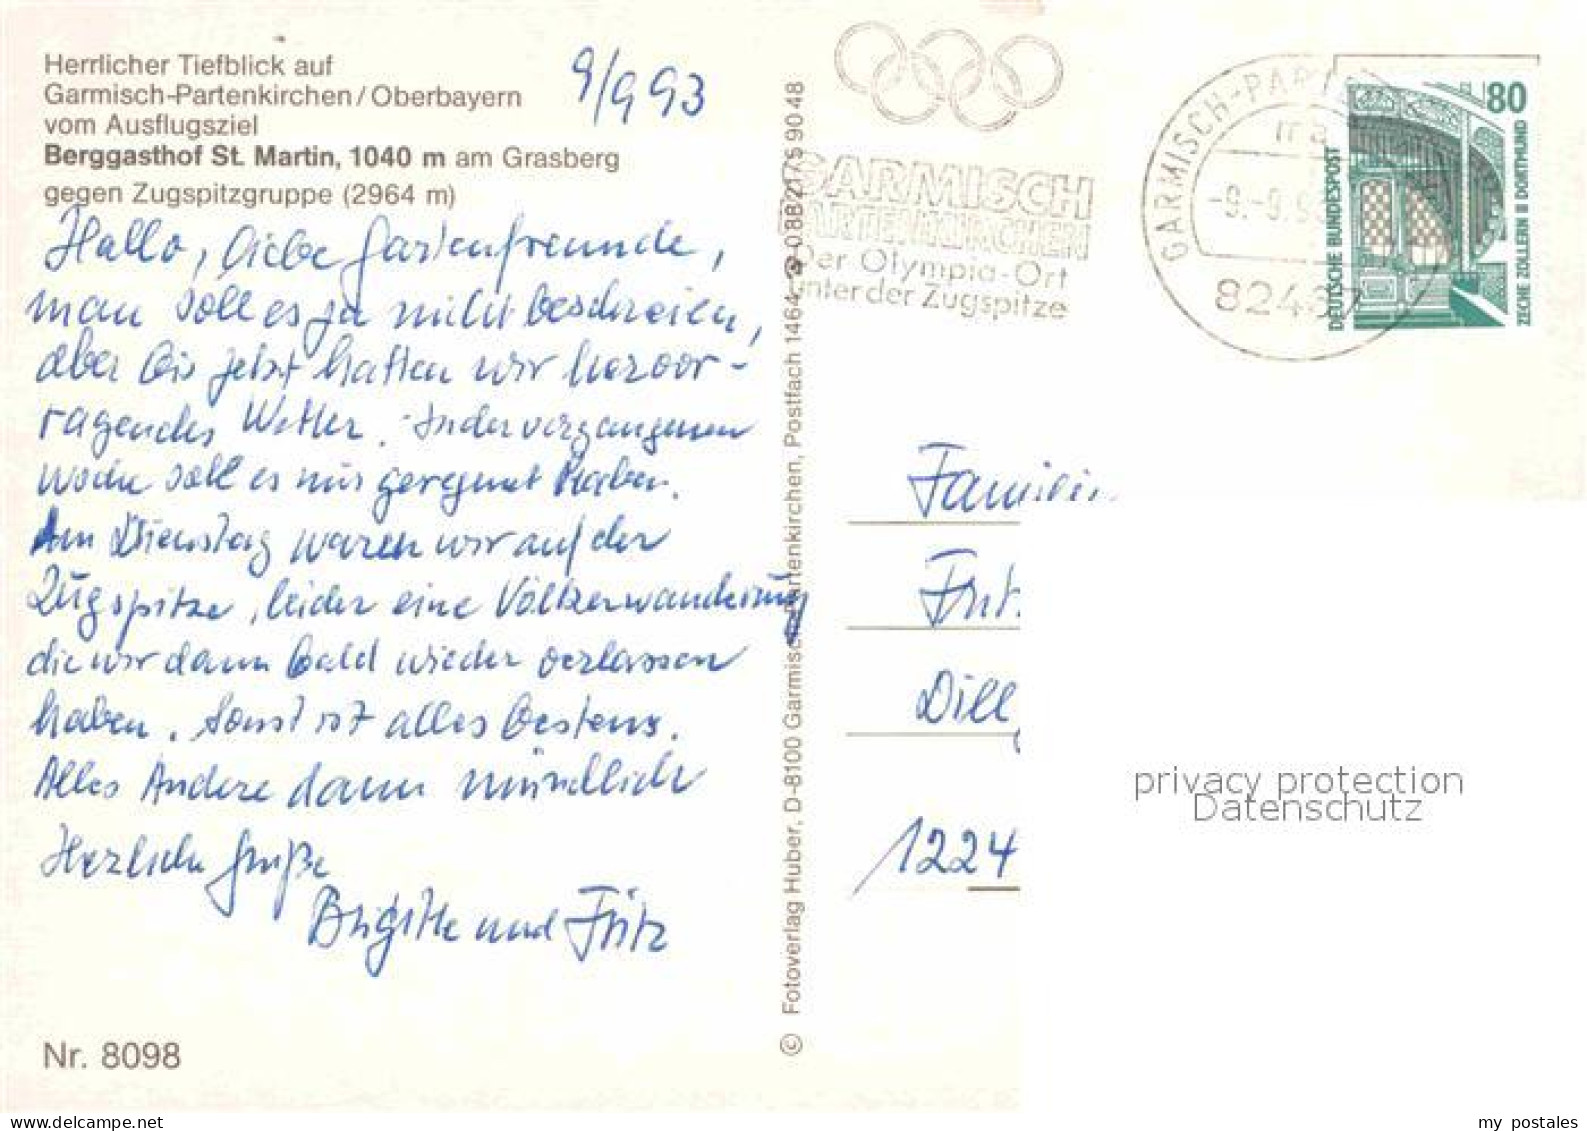 Herrlicher Tiefblick auf
Garmisch-Partenkirchen/Oberbayern
vom Ausflugsziel
Berggasthof St. Martin, 1040 m am Grasberg
gegen Zugspitzgruppe (2964 m)
9/9 93
Hallo, liebe Gartenfreunde,
man soll es ja nicht beschreien,
aber bis jetzt hatten wir hervor-
ragendes Wetter. In der vergangenen
Woche soll es nur geregnet haben.
Am Dienstag waren wir auf der
Zugspitze, leider eine Völkerwanderung
die wir dann bald wieder verlassen
haben. Sonst ist alles bestens.
Alles Andere dann mündlich
Herzliche Grüße
Brigitte und Fritz
Nr. 8098
© Fotoverlag Huber, D-8100 Garmisch-Partenkirchen, Postfach 1464, 08821/5 90 48
GARMISCH
PARTENKIRCHEN
Der Olympia-Ort
unter der Zugspitze
GARMISCH-PARTE
-9.-9.9
82467
80
DEUTSCHE BUNDESPOST
ZECHE ZOLLERN II DORTMUND
Dill
1224
privacy protection
Datenschutz
my postales